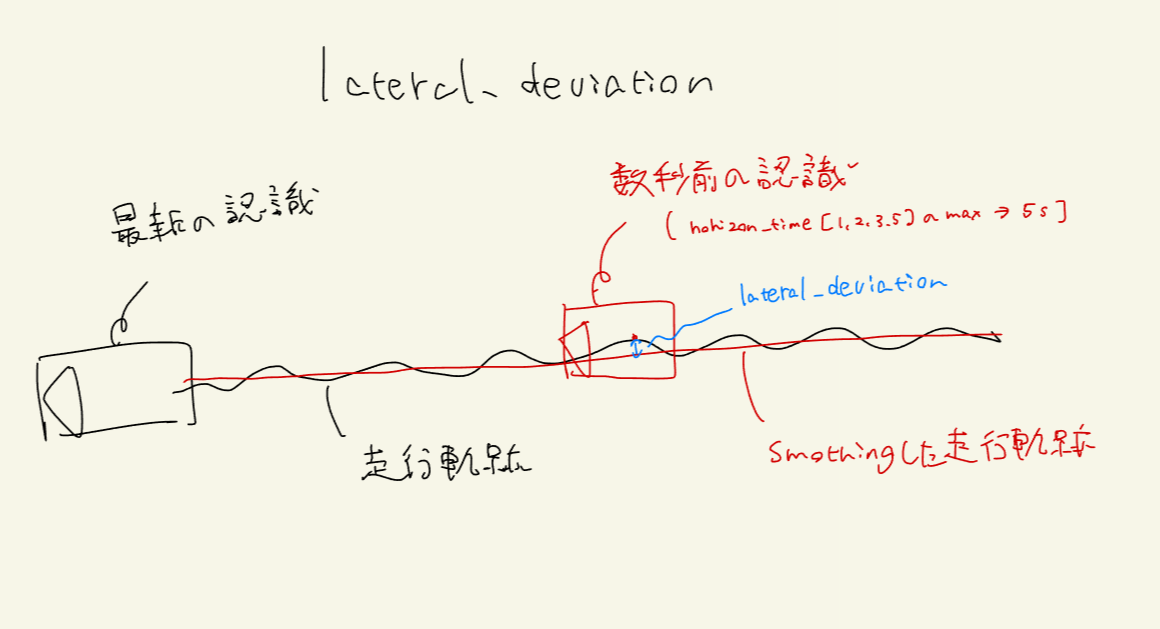 lateral_deviation
最新の認識
数秒前の認識
( horizon_time [1, 2, 3. 5] の max → 5s ]
lateral_deviation
走行軌跡
Smothingした走行軌跡